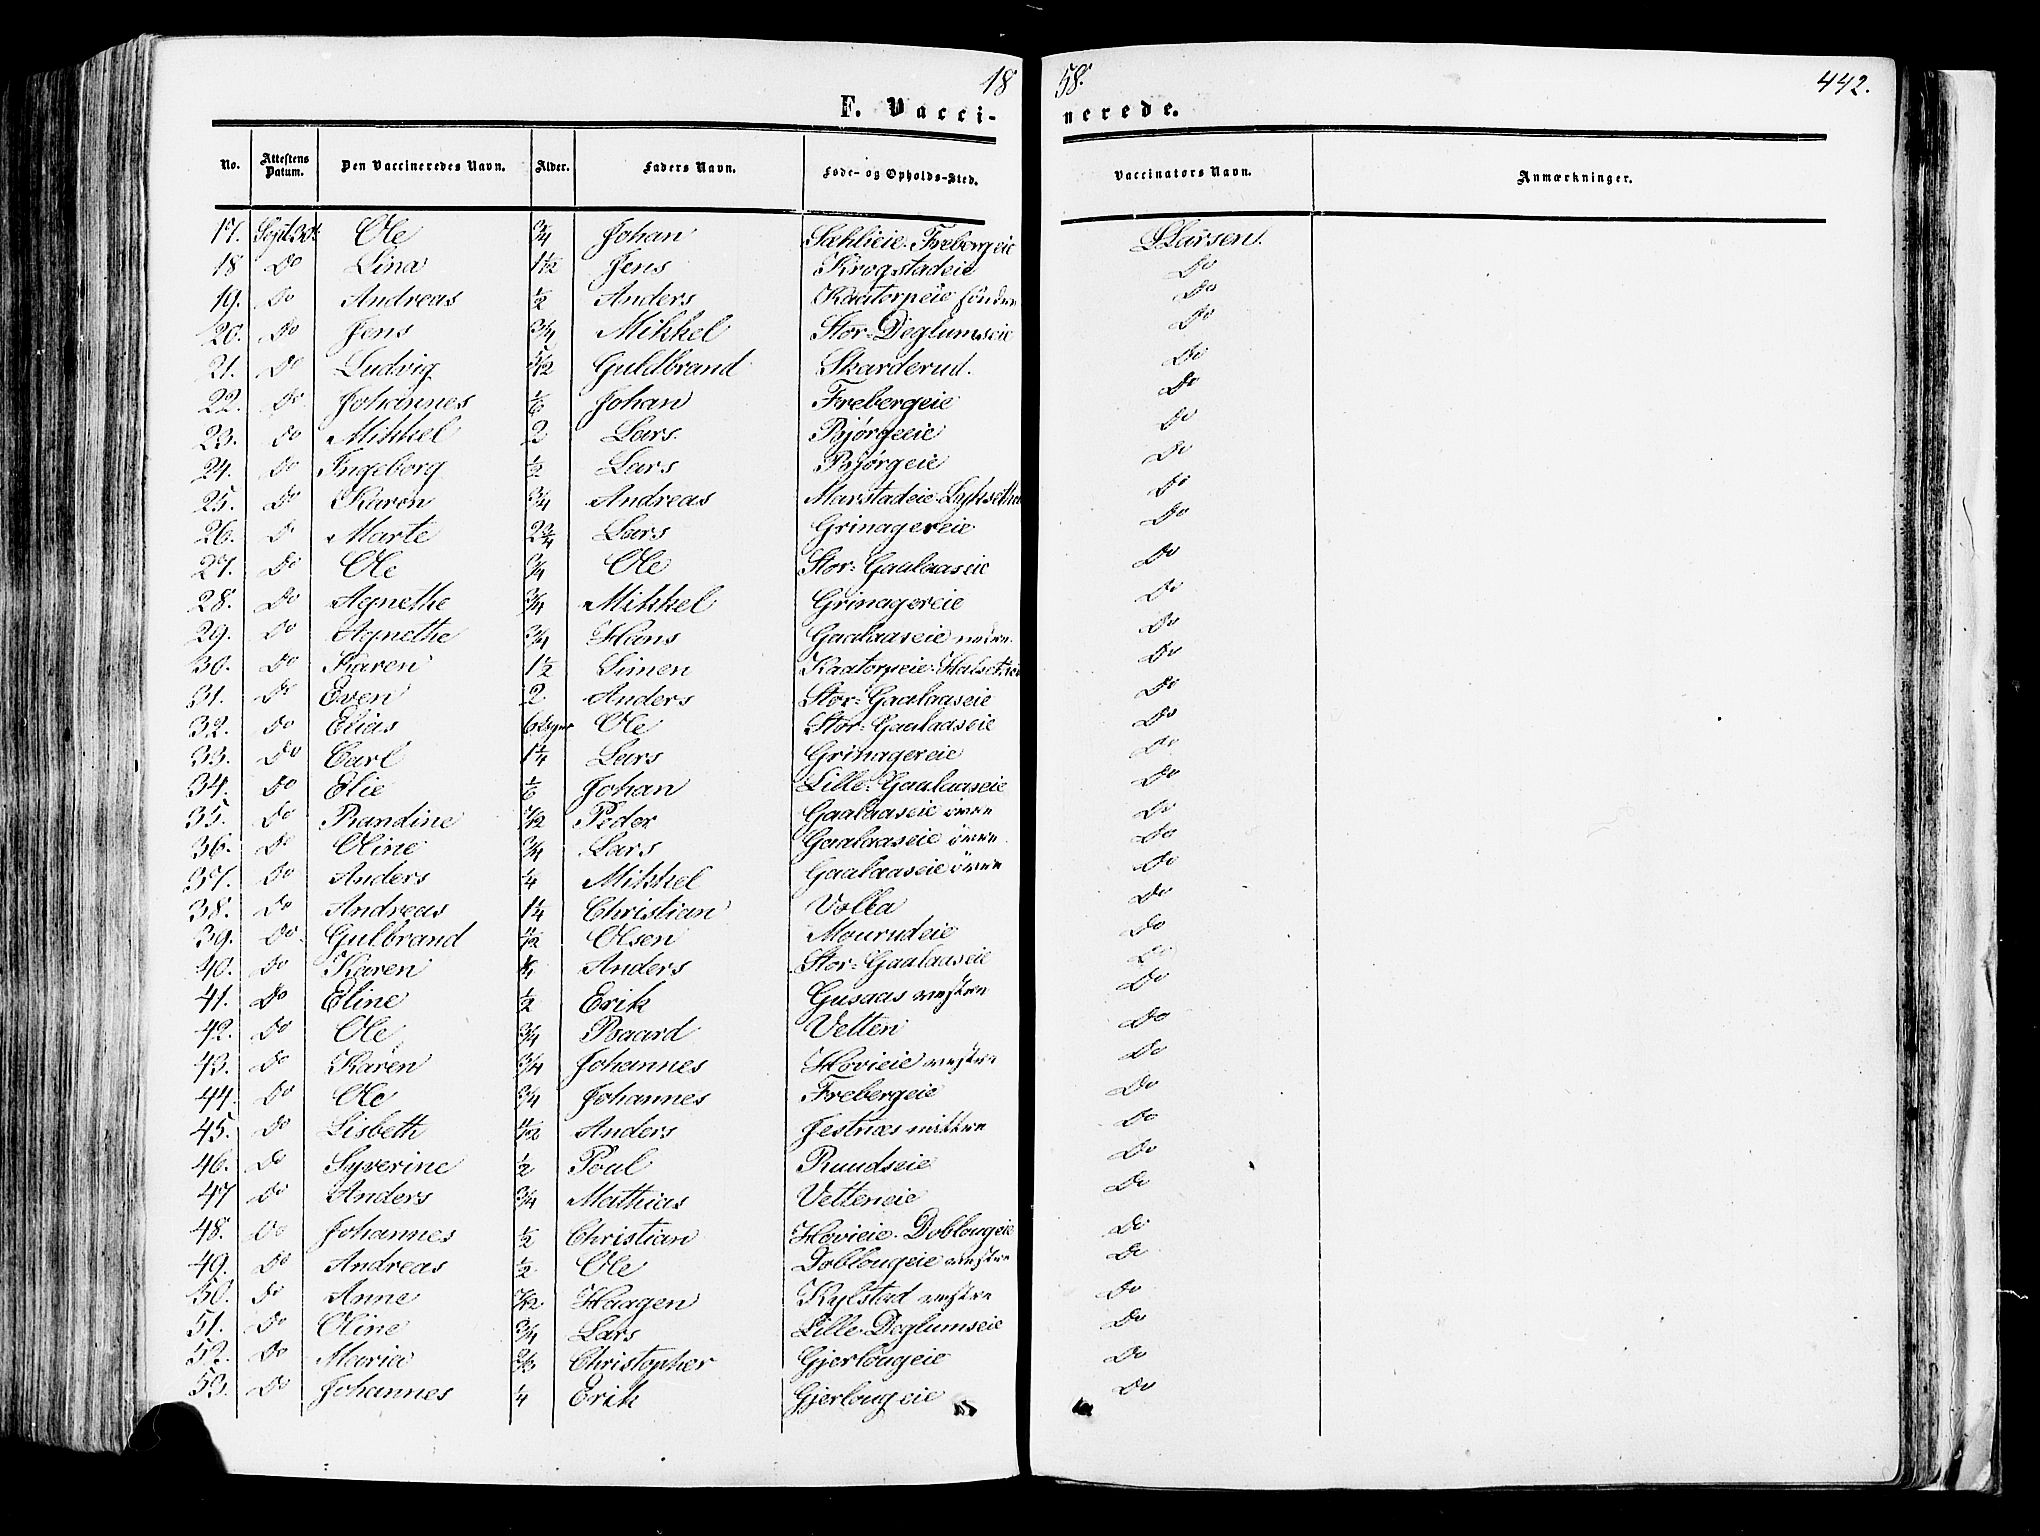 1858. 442.
F. Vaccinerede.
No. Attestens Datum. Den Vaccineredes Navn. Alder. Faders Navn. Føde- og Opholds-Sted. Vaccinators Navn. Anmærkninger.
17. Ole 3/4 Johan Sahlieie Frebergeie Larsen.
18 Do Lina 1 1/2 Jens Krogstadeie Do
19. Do Andreas 1/2 Anders Kaatorpeie søndre Do
20. Do Jens 3/4 Mikkel Stor-Deglumseie Do
21. Do Ludvig 5/12 Guldbrand Skarderud. Do
22. Do Johannes 1/6 Johan Frebergeie Do
23. Do Mikkel 2 Lars. Bjørgeeie Do
24. Do Ingeborg 1/2 Lars Bjørgeie Do
25. Do Karen 3/4 Andreas Marstadeie Do
26. D Marte 2 3/4 Lars Grinagereie Do
27. Do Ole 3/4 Ole Stor-Gaalaaseie Do
28. Do Agnethe 3/4 Mikkel Grinagereie Do
29. Do Agnethe 3/4 Hans Gaalaaseie nedre. Do
30. Do Karen 1 1/2 Simen Kaatorpeie Do
31. Do Even 2 Anders Stor-Gaalaaseie Do
32. Do Elias Ole Stor-Gaalaaseie Do
33. Do Carl 1 1/4 Lars Grinagereie Do
34. Do Elie 1/6 Johan Lille-Gaalaaseie Do
35. Do Randine 7/12 Peder Gaalaaseie övre Do
36. Do Oline 3/4 Lars Gaalaaseie övre Do
37. Do Anders 1/4 Mikkel Gaalaaseie övre Do
38. Do Andreas 1 1/4 Christian Volla Do
39. Do Gulbrand Olsen Mourudeie Do
40. Do Karen Anders Stor-Gaalaaseie Do
41. Do Eline 1/2 Erik Gusaas vestre Do
42. Do Ole 3/4 Baard Vetten Do
43. Do Karen 3/4 Johannes Hovieie vestre Do
44. Do Ole 3/4 Johannes Frebergeie Do
45. Do Lisbeth Anders Jestnæs mittre Do
46. Do Syverine 1/2 Poul Ruudseie Do
47 Do Anders 3/4 Mathias Vetteneie Do
48. Do Johannes 1/2 Christian Hovieie Doblougeie Do
49. Do Andreas 1/2 Ole Doblougeie vestre Do
50. Do Anne 7/12 Haagen Kylstad vestre Do
51. Do Oline 3/4 Lars Lille-Deglumseie Do
52. Do Maria 2/3 Christopher Gjerlougeie Do
53. Do Johannes 1/4 Erik Gjerlougeie Do